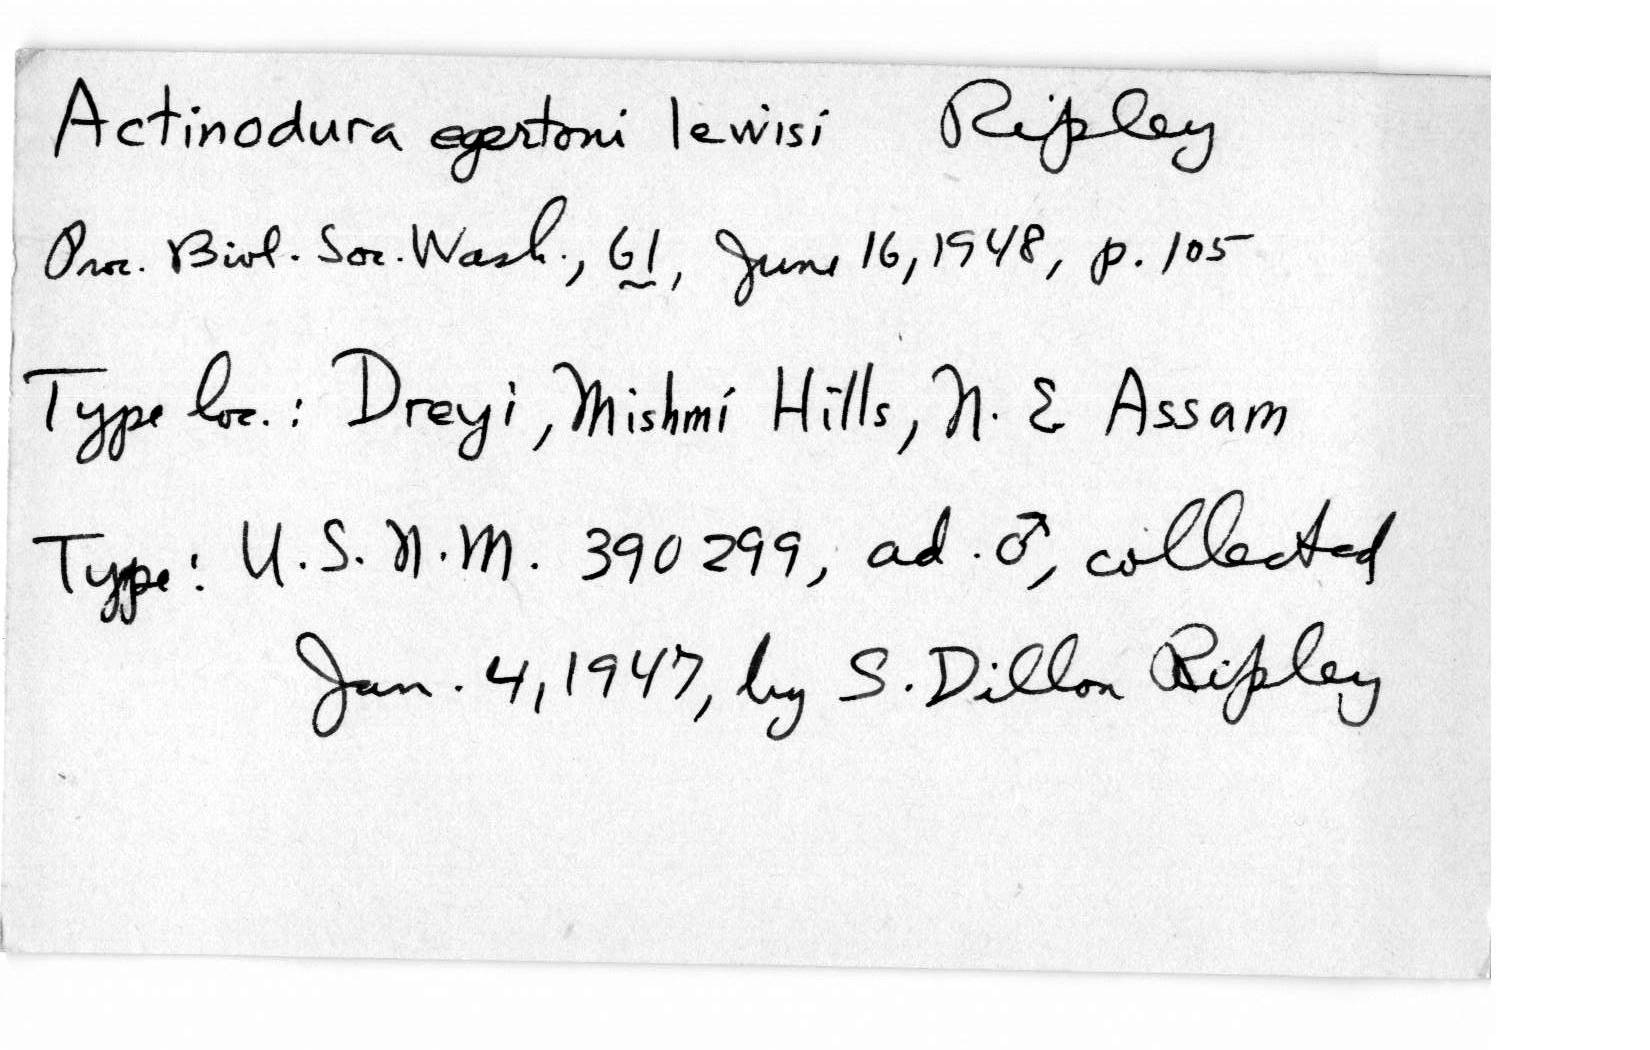 Actinodura egertoni lewisi Ripley
Proc. Biol. Soc. Wash., 61, June 16, 1948, p. 105
Type loc.: Dreyi, Mishmi Hills, N. E Assam
Type: U.S.N.M. 390299, ad. ♂, collected
Jan. 4, 1947, by S. Dillon Ripley